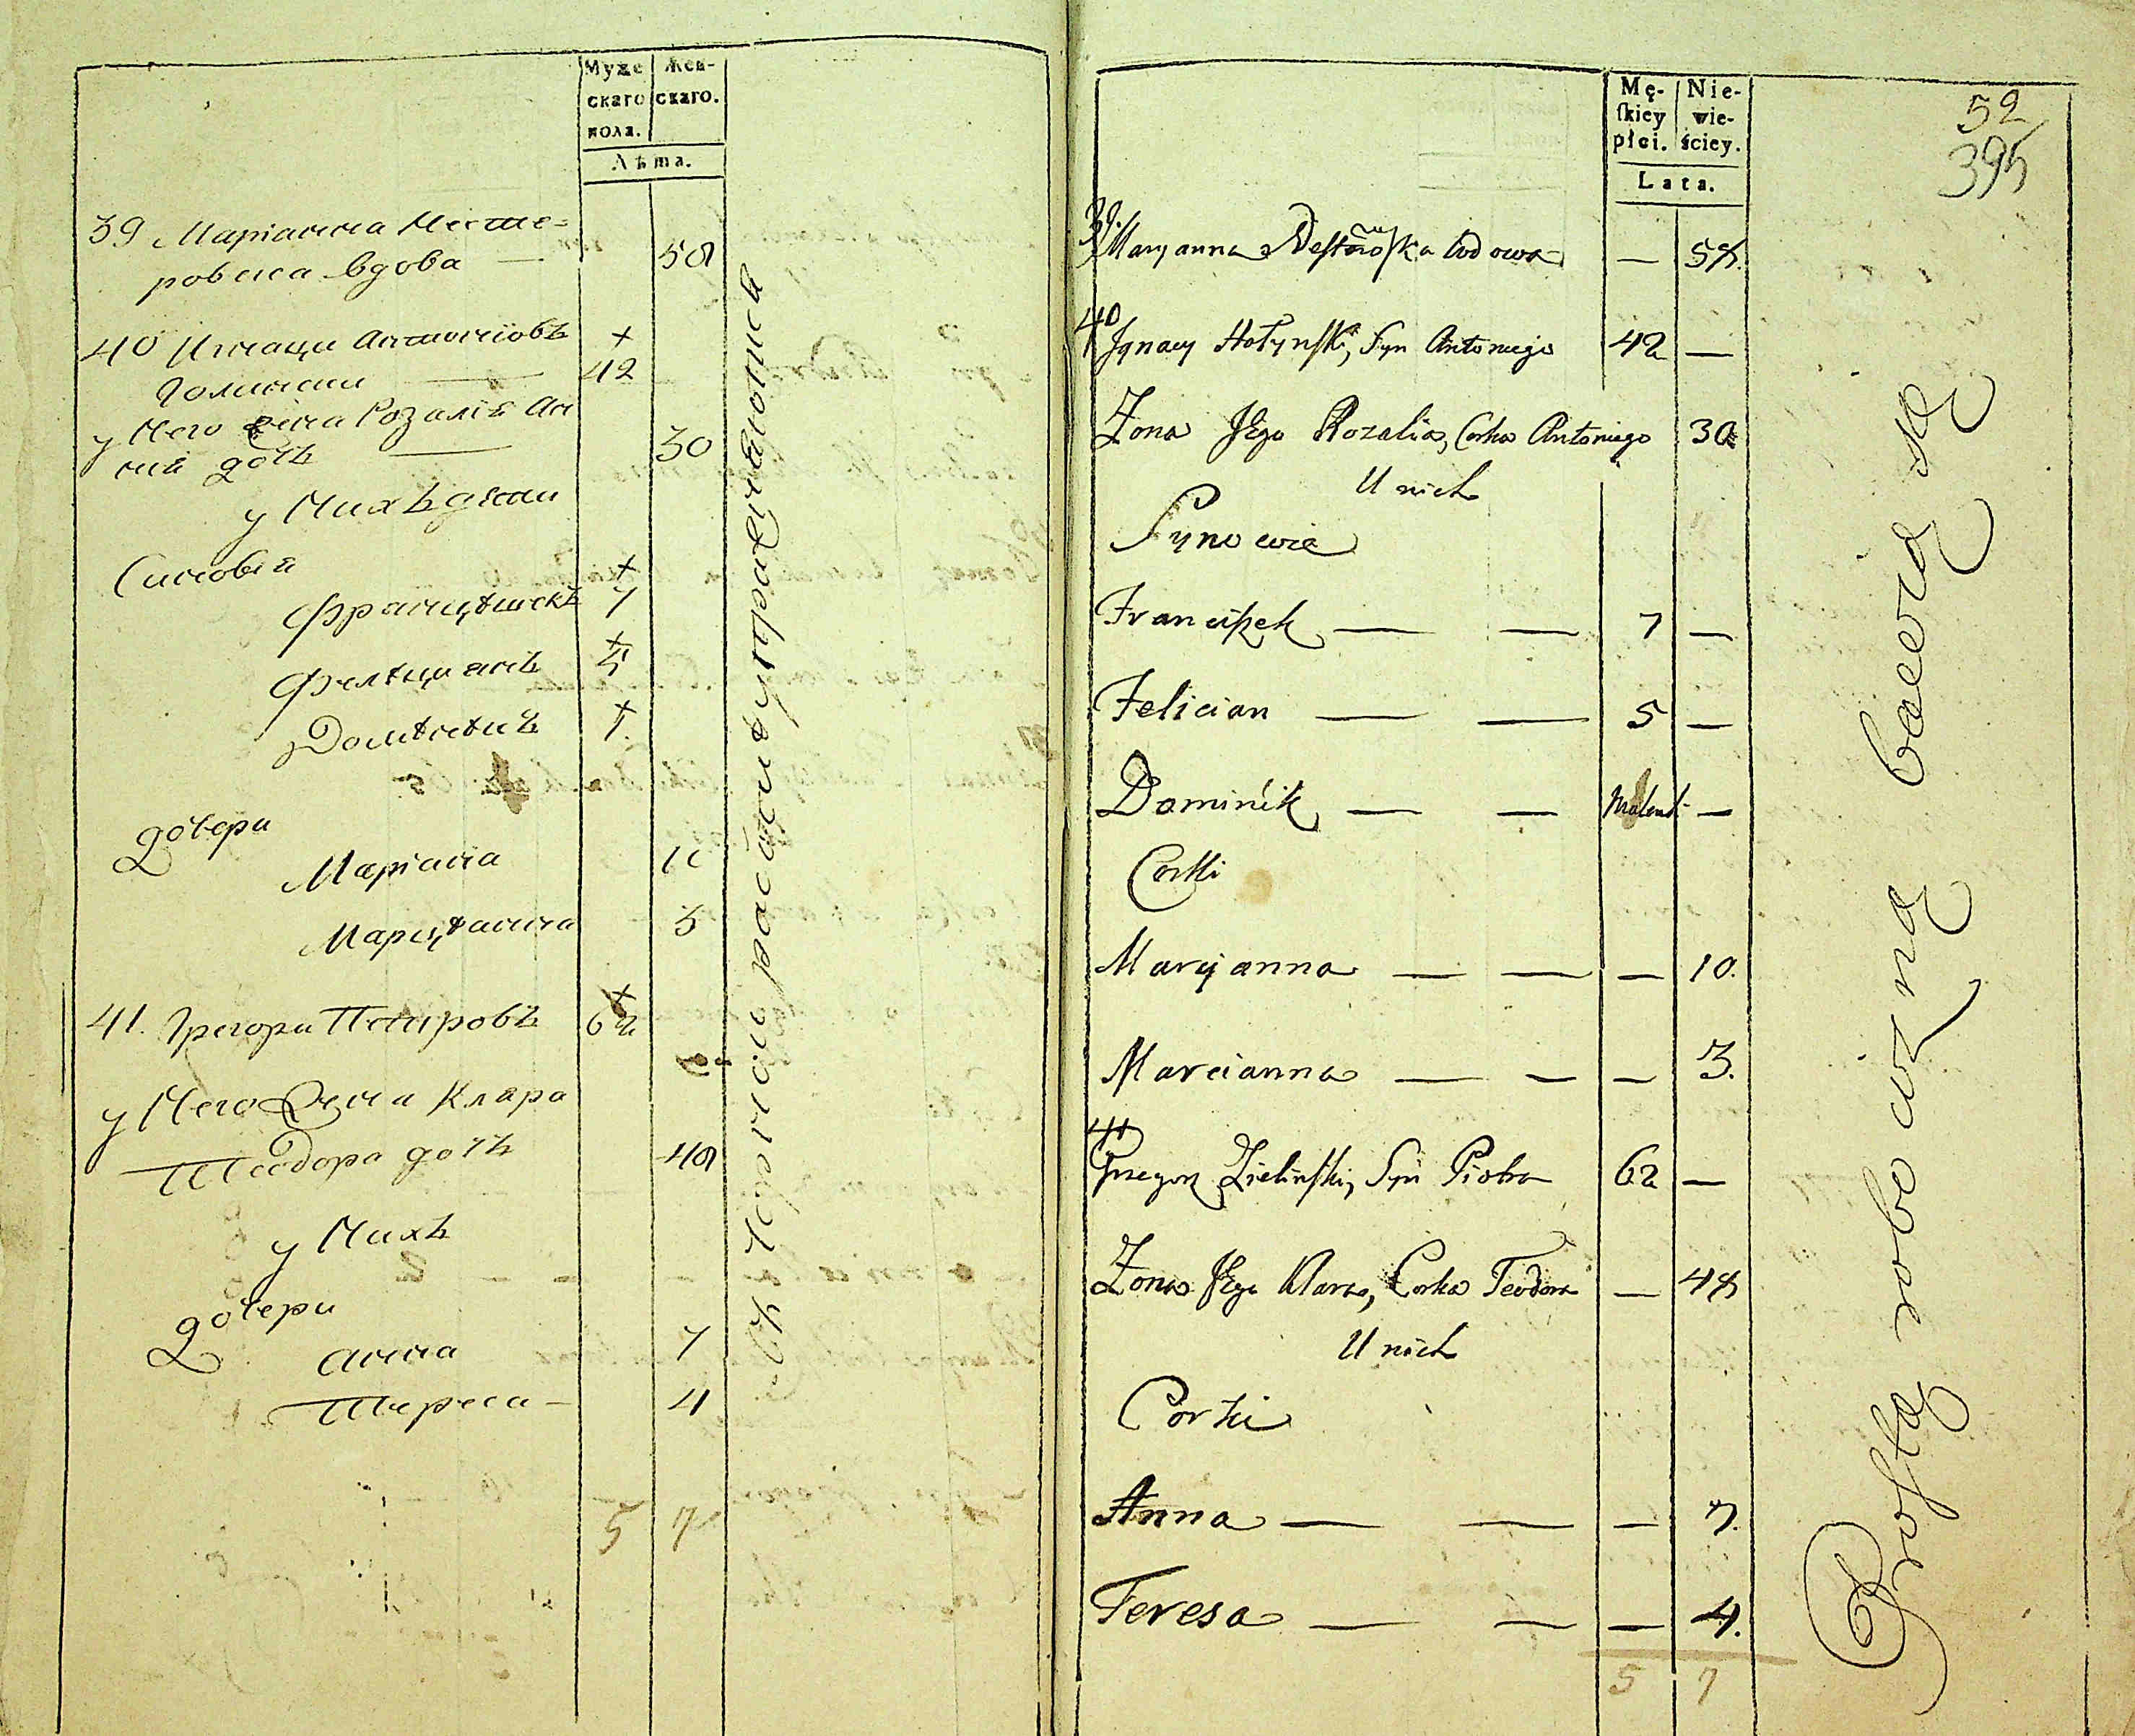 Муже Жен-
скаго скаго.
пола.
Лѣта.
39 Маріанна Несте-
ровска вдова — 58
40 Игнаци Антоніовъ +
Голински — 42
у Него жена Розаліа Ан
ній дочь — 30
у Нихъ дѣти
Синовья +
Францишекъ 7
+
Фелициянъ 5
+
Доминикъ 1.
дочери
Маріана 10
Марціанна 3
+
41. Грегори Петровъ 62
у Него Жена Клара
Теодора дочь 48
у Нихъ
дочери
анна 7
Тереса — 4
5 7
Mę- Nie-
skiey wie-
płci. ściey.
Lata.
52
395
39. Maryanna Nesterowska wdowa — 58.
40 Ignacy Hołynski, Syn Antoniego 42 —
Zona Jego Rozalia, Corka Antoniego 30
U nich
Synowie
Franciszek — — 7 —
Felician — — 5 —
Dominik — — —
Corki
Maryanna — — — 10.
Marcianna — — — 3.
41 Grzegorz Zielinski, Syn Piotra 62 —
Zona Jego Klara, Corka Teodora — 48
U nich
Corki
Anna — — — 7.
Teresa — — — 4.
5 7
Prostą robocizną bawią się